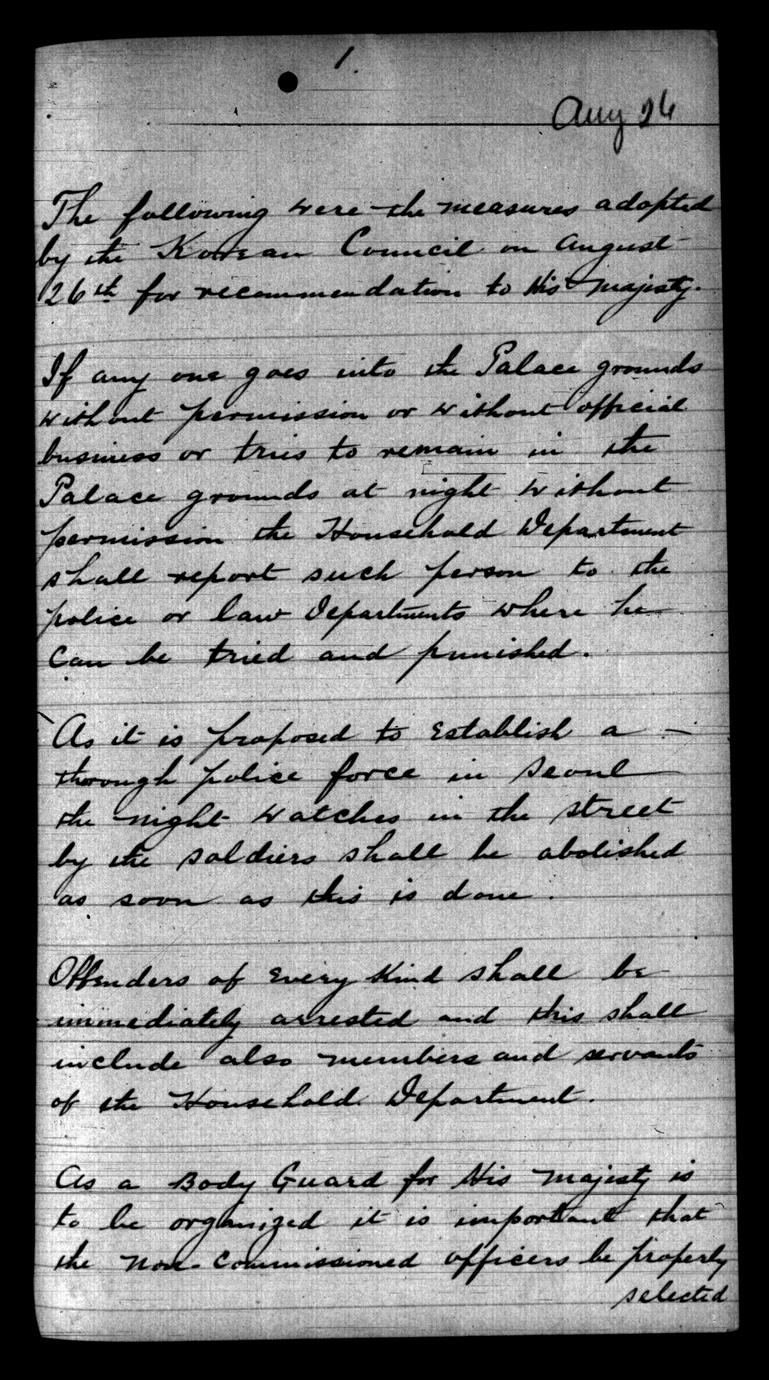 1.
Aug 26
The following were the measures adopted
by the Korean Council on August
26th for recommendation to His Majesty.
If any one goes into the Palace grounds
without permission or without official
business or tries to remain in the
Palace grounds at night without
permission the Household Department
shall report such person to the
police or law Departments where he
can be tried and punished.
As it is proposed to establish a —
through police force in Seoul
the night watches in the street
by the soldiers shall be abolished
as soon as this is done.
Offenders of every kind shall be
immediately arrested and this shall
include also members and servants
of the Household Department.
As a Body Guard for His Majesty is
to be organized it is important that
the non-commissioned officers be properly
selected